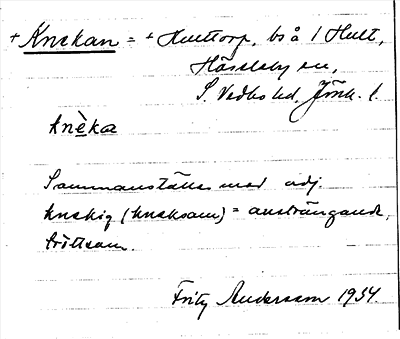 + Knekan = + Hulttorp, bs å 1 Hult,
Hässleby sn,
S. Vedbo hd, Jönk. l.
knèka
Sammanställes med adj.
knekig (kneksam) = ansträngande,
tröttsam
Fritz Andersson 1934.